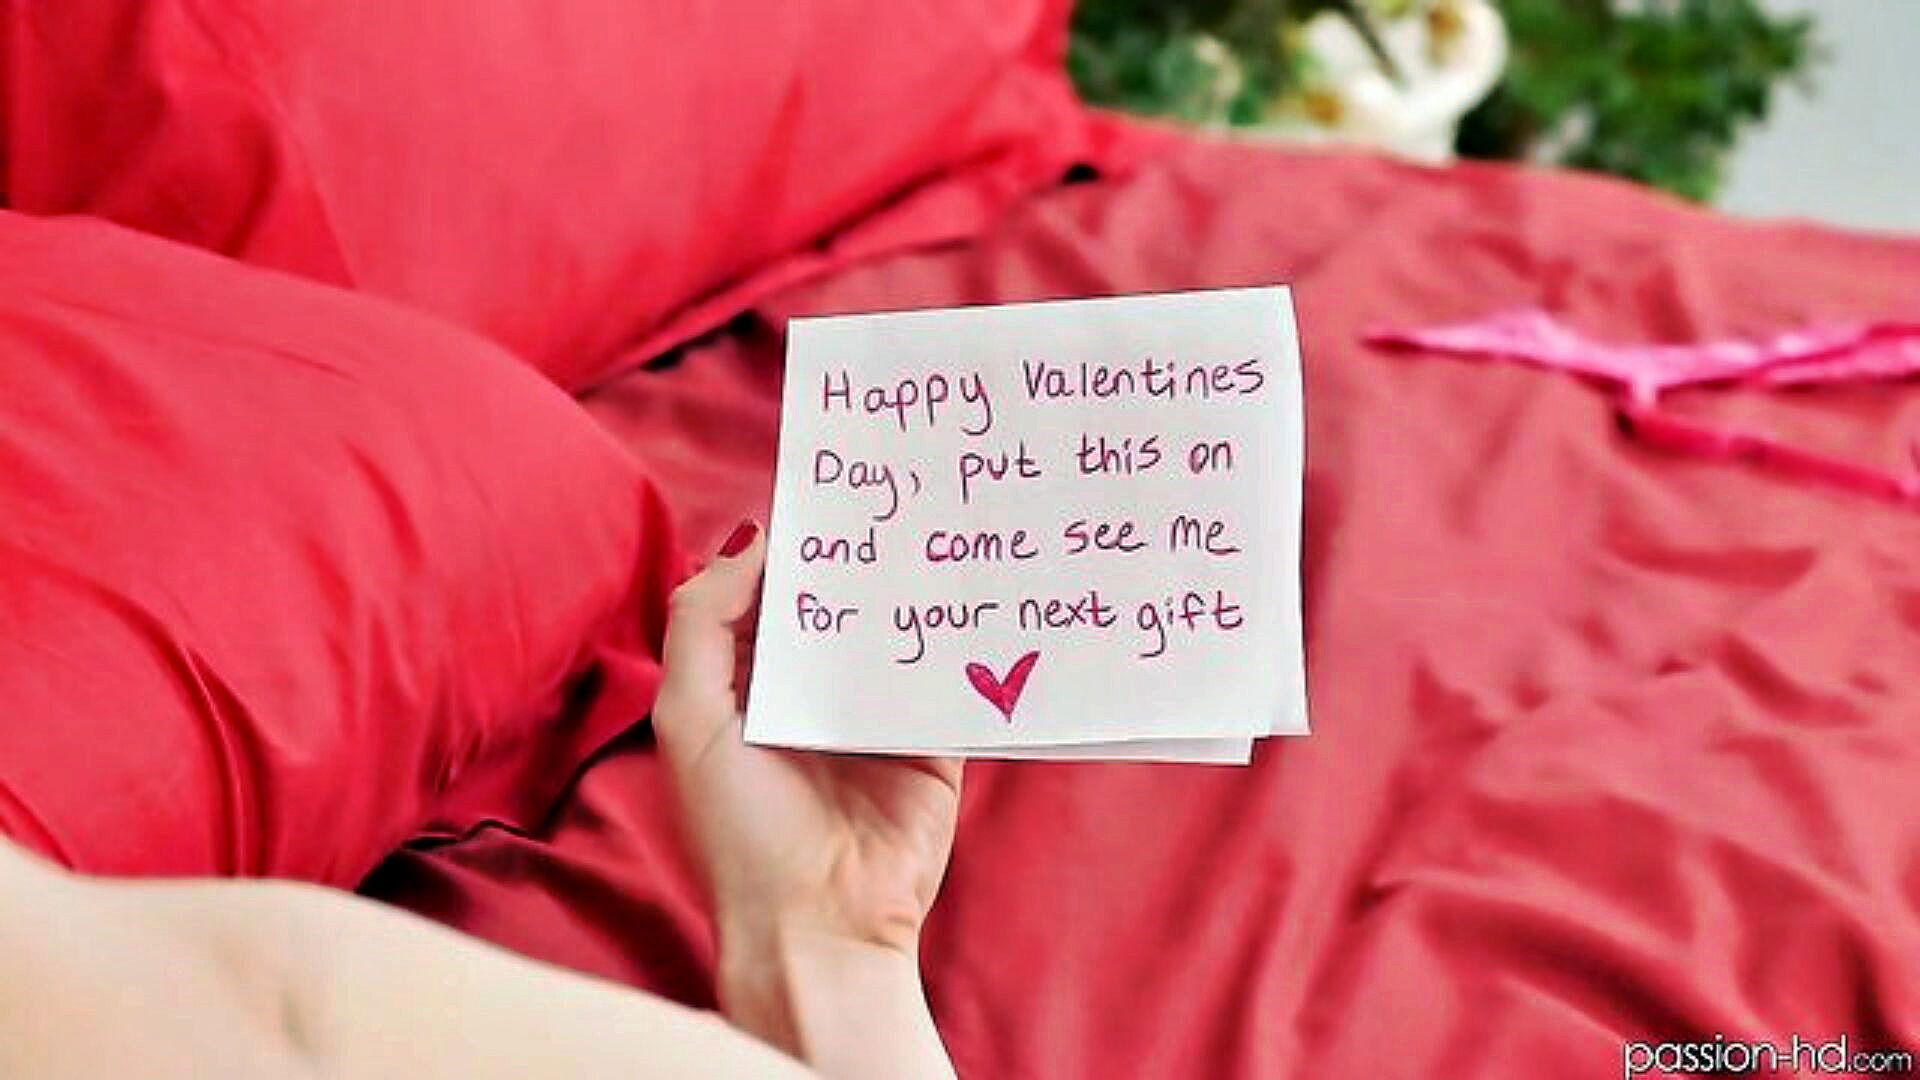 Happy Valentines
Day, put this on
and come see me
for your next gift
passion-hd.com